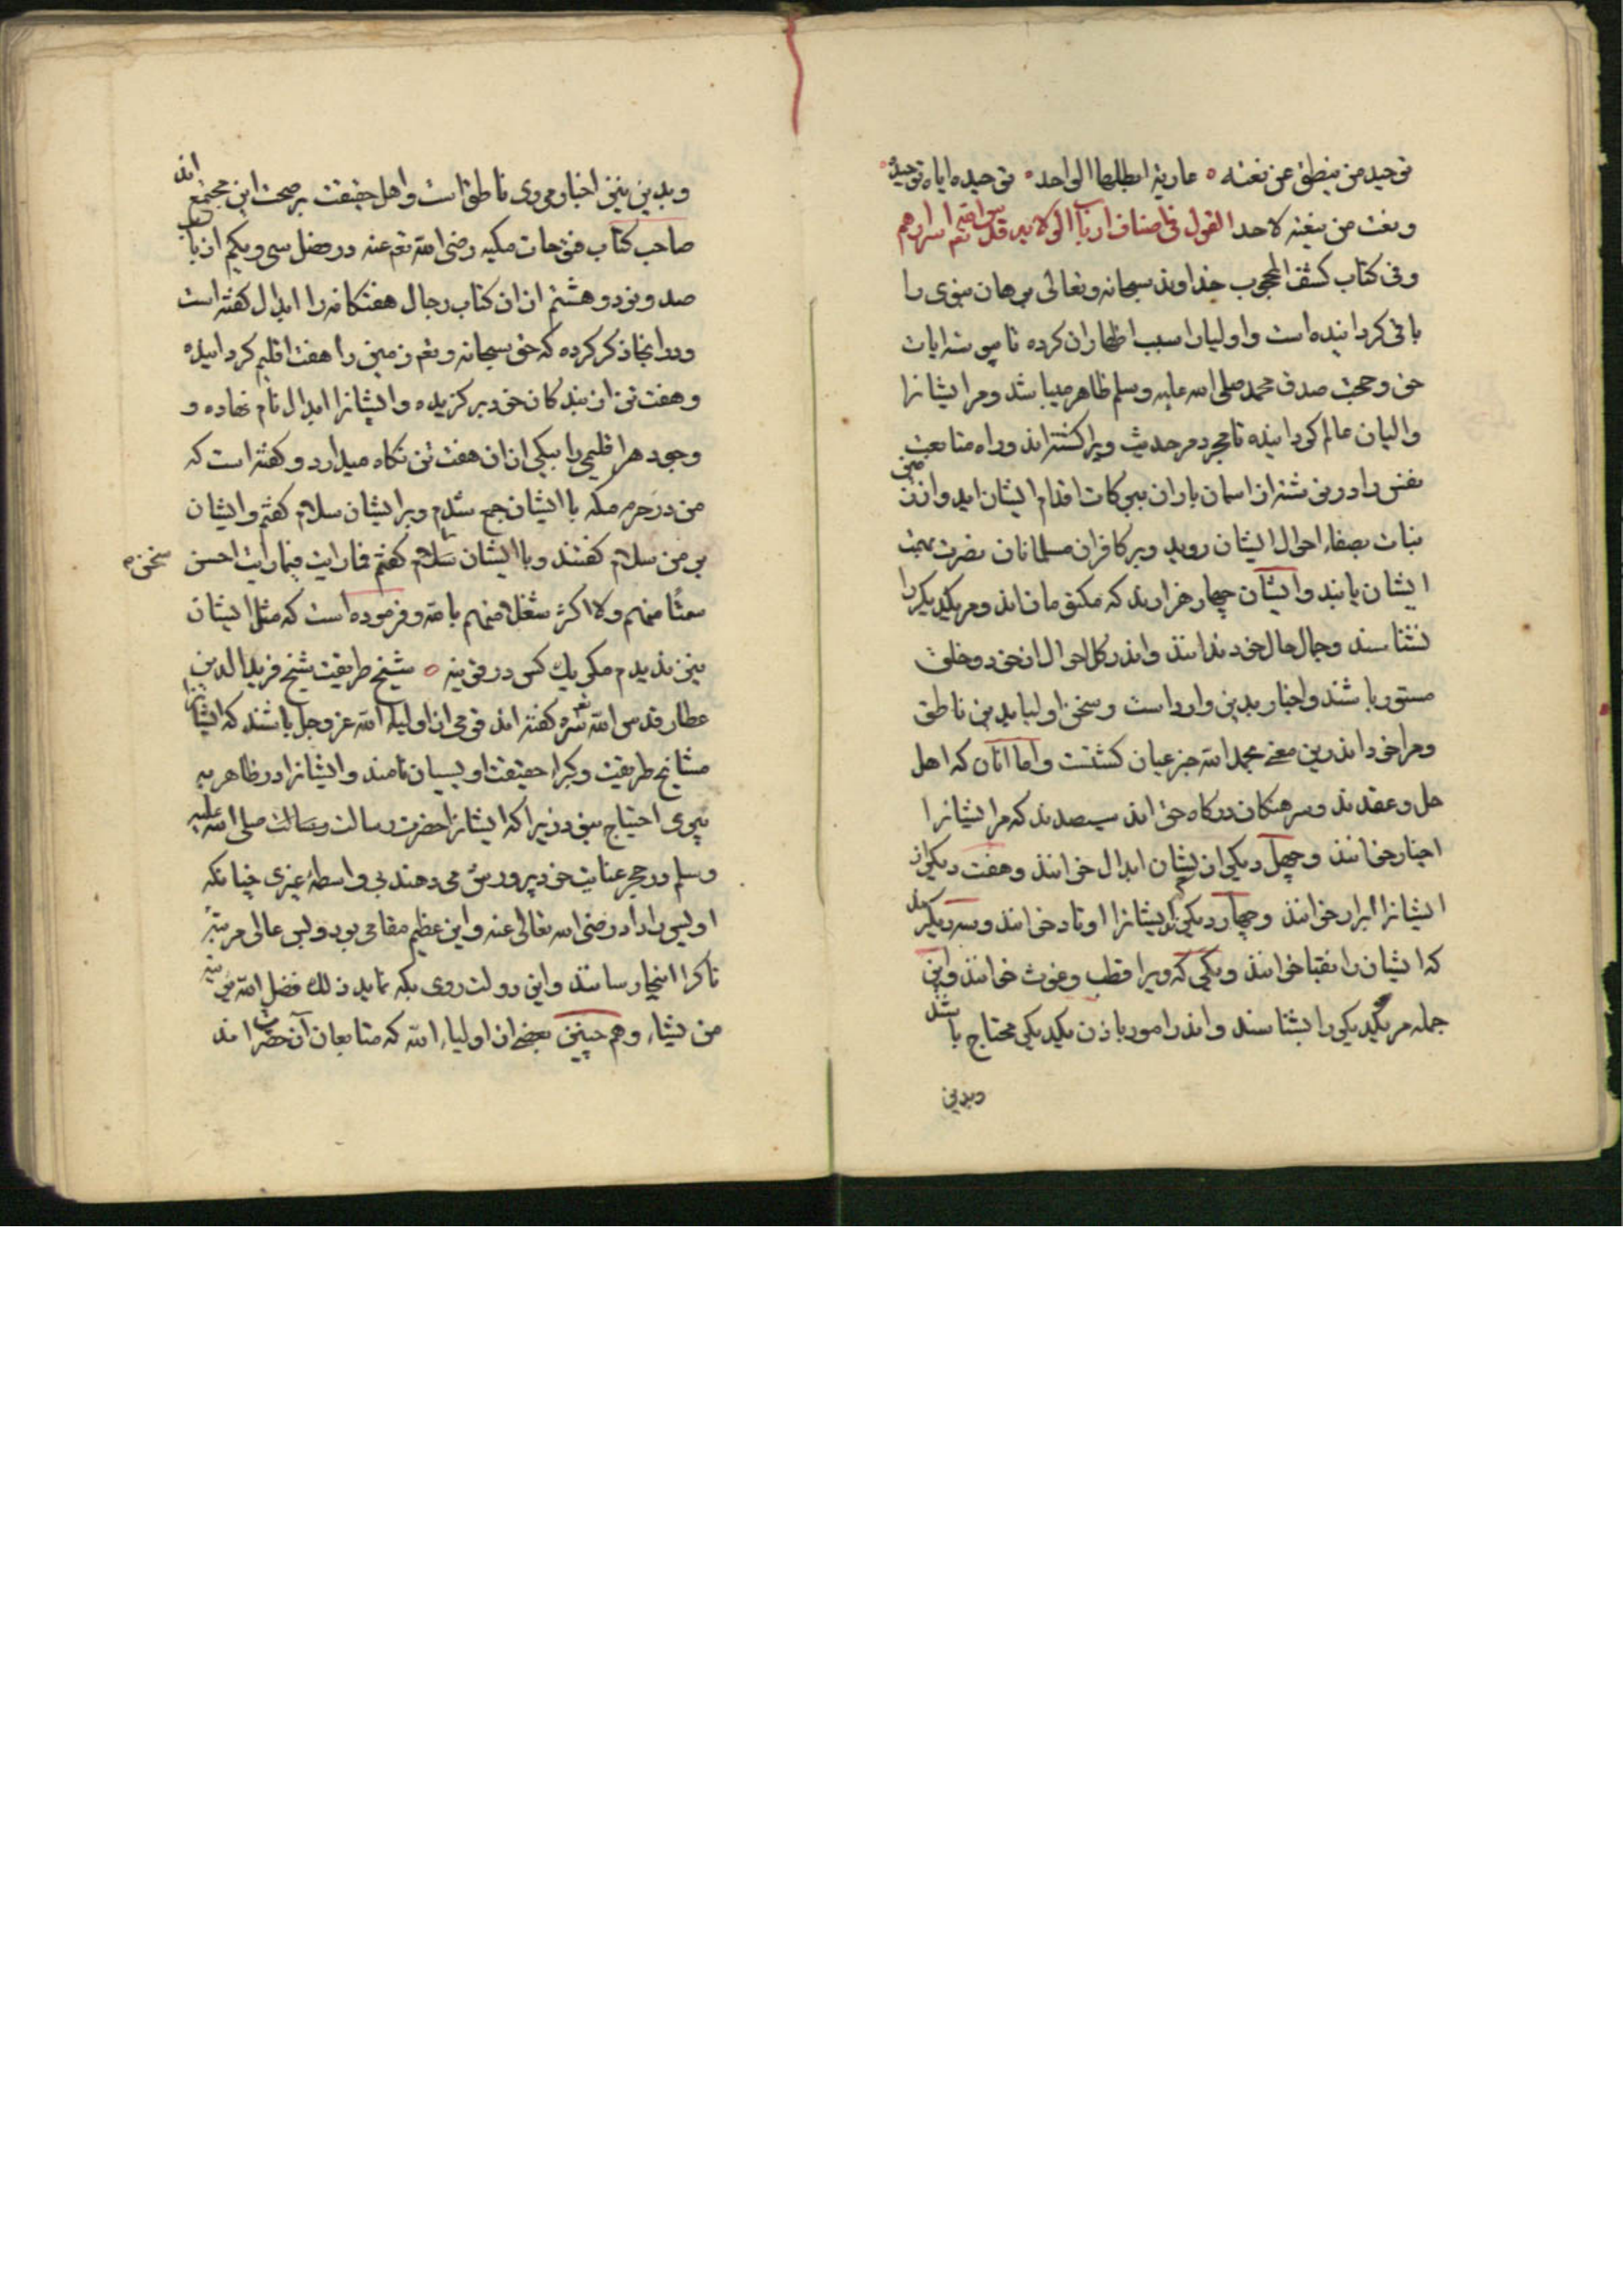 توحید من ینطق عن نعته ۰ عاریة ابطلها الواحد ۰ توحیده ایاه توحیده ۰
ونعت من ینعته لاحد القول فی اصناف ارباب الولایه قدس الله تعم اسرارهم
وفی کتاب کشف المحجوب خداوند سبحانه وتعالی برهان نبوی را
باقی کردانیده است واولیارا سبب اظهار ان کرده تا پیوسته ایات
حق وحجت صدق محمد صلی الله علیه وسلم ظاهر میباشد ومر ایشانرا
والیان عالم کردانیده تا مجرد مر حدیث ویرا کشته اند وراه متابعت
نفس را در نوشته از اسمان باران ببرکات اقدام ایشان اید واز زمین
نبات بصفاء احوال ایشان روید وبر کافران مسلمانان نصرت بهمت
ایشان یابند وایشان چهار هزارند که مکتومانند ومر یکدیکر را
نشناسند وجمال حال خود ندانند واندر کل احوال از خود وخلق
مستور باشند واخبار بدین وارد است وسخن اولیا بدین ناطق
ومرا خود اندرین معنی بحمد الله خبر عیان کشتست واما انان که اهل
حل وعقدند وسرهنکان درکاه حق اند سیصدند که مر ایشانرا
اخیار خوانند وچهل دیکر از یشان ابدال خوانند وهفت دیکر از
ایشانرا ابرار خوانند وچهار دیکرند که ایشانرا اوتاد خوانند وسه دیکرند
که ایشان را نقبا خوانند ویکی که ویرا قطب وغوث خوانند واین
جمله مر یکدیکر را بشناسند واندر امور باذن یکدیکر محتاج باشند
وبدین
وبدین نیز اخبار مروی ناطق است واهل حقیقت بر صحت این مجتمع اند
صاحب کتاب فتوحات مکیه رضی الله تعم عنه در فصل سی ویکم از باب
صد ونود وهشتم از ان کتاب رجال هفتکانه را ابدال کفته است
ودر انجا ذکر کرده که حق سبحانه وتعم زمین را هفت اقلیم کردانیده
وهفت تن از بندکان خود برکزیده وایشانرا ابدال نام نهاده و
وجود هر اقلیمی را بیکی از ان هفت تن نکاه میدارد وکفته است که
من در حرم مکه با ایشان جمع شدم وبر ایشان سلام کفتم وایشان
بر من سلام کفتند وبا ایشان سخن کفتم فما رایت فیما رایت احسن
سخن ه
سمتا منهم ولا اکثر شغلا منهم بالله وفرموده است که مثل ایشان
نیز ندیدم مکر یک کس در قونیه ۰ شیخ طریقت شیخ فرید الدین
عطار قدس الله تعم سره کفته اند قومی از اولیاء الله عز وجل باشند که ایشانرا
مشایخ طریقت وکبراء حقیقت اویسیان نامند وایشانرا در ظاهر به
پیری احتیاج نبود زیرا که ایشانرا حضرت رسالت صلی الله علیه
وسلم در حجر عنایت خود پرورش می دهند بی واسطهٔ غیری چنانکه
اویس را داد رضی الله تعالی عنه واین عظیم مقامی بود وبس عالی مرتبهٔ
تا کرا اینجا رسانند واین دولت روی بکه نماید ذلک فضل الله یؤتیه
من یشاء وهم چنین بعضی از اولیاء الله که متابعان آن حضرت اند